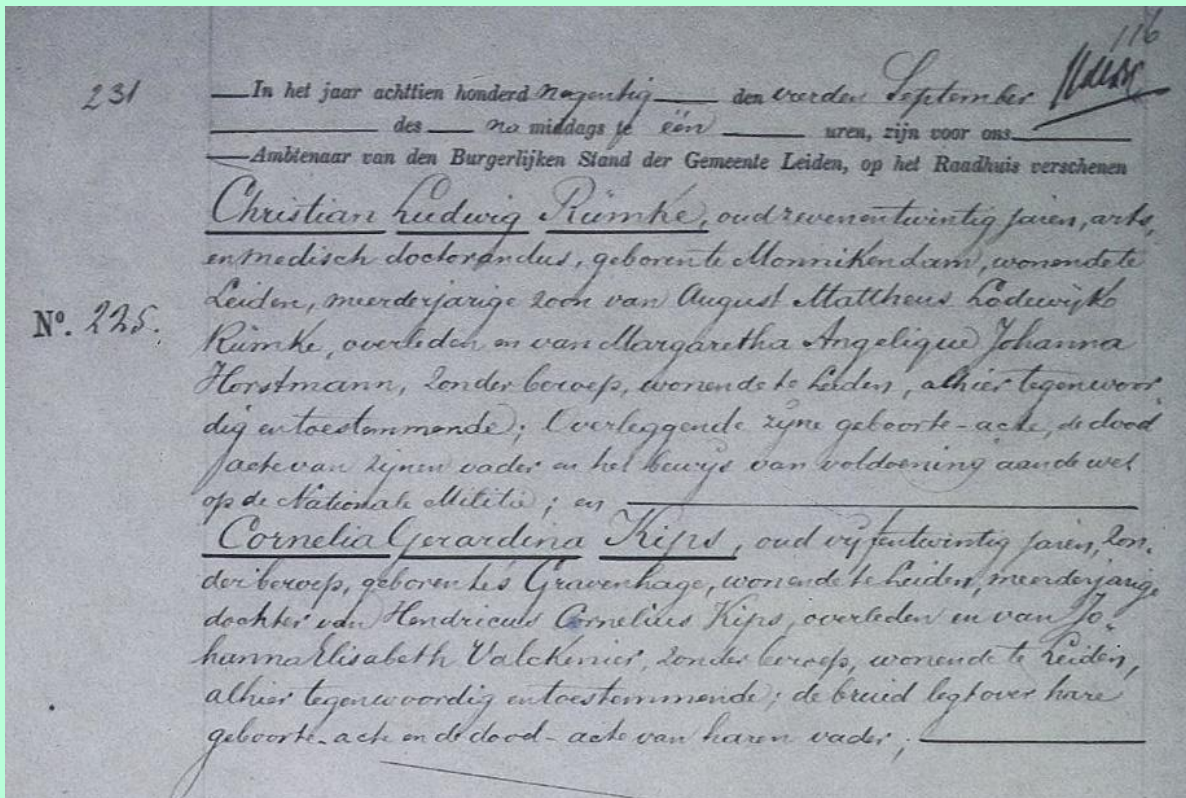 116
231
In het jaar achttien honderd negentig den vierden September
des na middags te één uren, zijn voor ons
Ambtenaar van den Burgerlijken Stand der Gemeente Leiden, op het Raadhuis verschenen
Christian Ludwig Rümke, oud zevenentwintig jaren, arts,
en medisch doctorandus, geboren te Monnikendam, wonende te
Leiden, meerderjarige zoon van August Mattheus Lodewijk
Nº. 225.
Rümke, overleden en van Margaretha Angelique Johanna
Horstmann, zonder beroep, wonende te Leiden, alhier tegenwoor
dig en toestemmende; Overleggende zijne geboorte-acte, de dood
acte van zijnen vader en het bewijs van voldoening aan de wet
op de Nationale Militie; en
Cornelia Gerardina Kips, oud vijfentwintig jaren, zon-
der beroep, geboren te 's Gravenhage, wonende te Leiden, meerderjarige
dochter van Hendricus Cornelius Kips, overleden en van Jo-
hanna Elisabeth Valckenier, zonder beroep, wonende te Leiden,
alhier tegenwoordig en toestemmende; de bruid legt over hare
geboorte-acte en de dood-acte van haren vader;